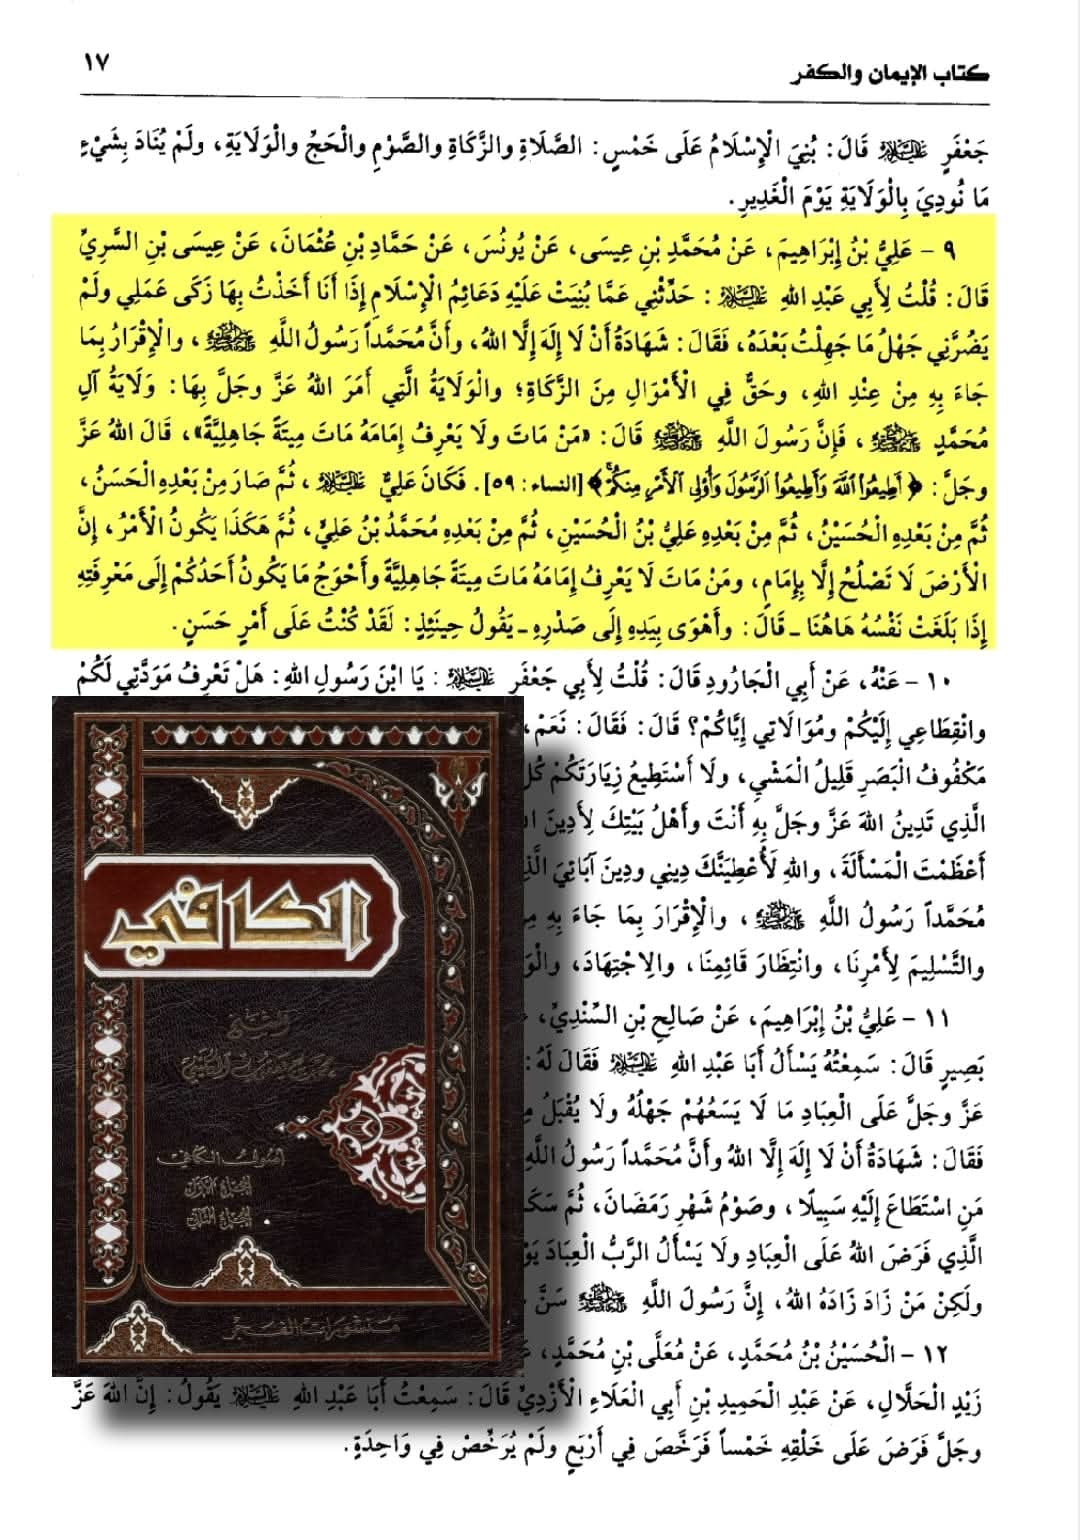 ١٧
كتاب الإيمان والكفر
جَعْفَرٍ عَلَيْهِ السَّلَامُ قَالَ: بُنِيَ الْإِسْلَامُ عَلَى خَمْسٍ: الصَّلَاةِ والزَّكَاةِ والصَّوْمِ والْحَجِّ والْوَلَايَةِ، ولَمْ يُنَادَ بِشَيْءٍ
مَا نُودِيَ بِالْوَلَايَةِ يَوْمَ الْغَدِيرِ.
٩ - عَلِيُّ بْنُ إِبْرَاهِيمَ، عَنْ مُحَمَّدِ بْنِ عِيسَى، عَنْ يُونُسَ، عَنْ حَمَّادِ بْنِ عُثْمَانَ، عَنْ عِيسَى بْنِ السَّرِيِّ
قَالَ: قُلْتُ لِأَبِي عَبْدِ اللهِ عَلَيْهِ السَّلَامُ: حَدِّثْنِي عَمَّا بُنِيَتْ عَلَيْهِ دَعَائِمُ الْإِسْلَامِ إِذَا أَنَا أَخَذْتُ بِهَا زَكَى عَمَلِي ولَمْ
يَضُرَّنِي جَهْلُ مَا جَهِلْتُ بَعْدَهُ، فَقَالَ: شَهَادَةُ أَنْ لَا إِلَهَ إِلَّا اللهُ، وأَنَّ مُحَمَّداً رَسُولُ اللَّهِ ﷺ، والْإِقْرَارُ بِمَا
جَاءَ بِهِ مِنْ عِنْدِ اللهِ، وحَقٌّ فِي الْأَمْوَالِ مِنَ الزَّكَاةِ؛ والْوَلَايَةُ الَّتِي أَمَرَ اللهُ عَزَّ وجَلَّ بِهَا: وَلَايَةُ آلِ
مُحَمَّدٍ ﷺ، فَإِنَّ رَسُولَ اللَّهِ ﷺ قَالَ: «مَنْ مَاتَ ولَا يَعْرِفُ إِمَامَهُ مَاتَ مِيتَةً جَاهِلِيَّةً»، قَالَ اللهُ عَزَّ
وجَلَّ: ﴿أَطِيعُوا۟ ٱللَّهَ وَأَطِيعُوا۟ ٱلرَّسُولَ وَأُو۟لِى ٱلْأَمْرِ مِنكُمْ﴾ [النساء: ٥٩]. فَكَانَ عَلِيٌّ عَلَيْهِ السَّلَامُ، ثُمَّ صَارَ مِنْ بَعْدِهِ الْحَسَنُ،
ثُمَّ مِنْ بَعْدِهِ الْحُسَيْنُ، ثُمَّ مِنْ بَعْدِهِ عَلِيُّ بْنُ الْحُسَيْنِ، ثُمَّ مِنْ بَعْدِهِ مُحَمَّدُ بْنُ عَلِيٍّ، ثُمَّ هَكَذَا يَكُونُ الْأَمْرُ، إِنَّ
الْأَرْضَ لَا تَصْلُحُ إِلَّا بِإِمَامٍ، ومَنْ مَاتَ لَا يَعْرِفُ إِمَامَهُ مَاتَ مِيتَةً جَاهِلِيَّةً وأَحْوَجُ مَا يَكُونُ أَحَدُكُمْ إِلَى مَعْرِفَتِهِ
إِذَا بَلَغَتْ نَفْسُهُ هَاهُنَا ـ قَالَ: وأَهْوَى بِيَدِهِ إِلَى صَدْرِهِ ـ يَقُولُ حِينَئِذٍ: لَقَدْ كُنْتُ عَلَى أَمْرٍ حَسَنٍ.
١٠ - عَنْهُ، عَنْ أَبِي الْجَارُودِ قَالَ: قُلْتُ لِأَبِي جَعْفَرٍ عَلَيْهِ السَّلَامُ: يَا ابْنَ رَسُولِ اللهِ: هَلْ تَعْرِفُ مَوَدَّتِي لَكُمْ
وانْقِطَاعِي إِلَيْكُمْ ومُوَالَاتِي إِيَّاكُمْ؟ قَالَ: فَقَالَ: نَعَمْ،
مَكْفُوفُ الْبَصَرِ قَلِيلُ الْمَشْيِ، ولَا أَسْتَطِيعُ زِيَارَتَكُمْ
الَّذِي تَدِينُ اللهَ عَزَّ وجَلَّ بِهِ أَنْتَ وأَهْلُ بَيْتِكَ لِأَدِينَ
أَعْظَمْتَ الْمَسْأَلَةَ، واللهِ لَأُعْطِيَنَّكَ دِينِي ودِينَ آبَائِيَ
مُحَمَّداً رَسُولُ اللَّهِ ﷺ، والْإِقْرَارَ بِمَا جَاءَ بِهِ
والتَّسْلِيمَ لِأَمْرِنَا، وانْتِظَارَ قَائِمِنَا، والِاجْتِهَادَ،
١١ - عَلِيُّ بْنُ إِبْرَاهِيمَ، عَنْ صَالِحِ بْنِ السِّنْدِيِّ،
بَصِيرٍ قَالَ: سَمِعْتُهُ يَسْأَلُ أَبَا عَبْدِ اللهِ عَلَيْهِ السَّلَامُ فَقَالَ لَهُ:
عَزَّ وجَلَّ عَلَى الْعِبَادِ مَا لَا يَسَعُهُمْ جَهْلُهُ ولَا يُقْبَلُ
فَقَالَ: شَهَادَةُ أَنْ لَا إِلَهَ إِلَّا اللهُ وأَنَّ مُحَمَّداً رَسُولُ اللَّهِ
مَنِ اسْتَطَاعَ إِلَيْهِ سَبِيلًا، وصَوْمُ شَهْرِ رَمَضَانَ، ثُمَّ
الَّذِي فَرَضَ اللهُ عَلَى الْعِبَادِ ولَا يَسْأَلُ الرَّبُّ الْعِبَادَ
ولَكِنْ مَنْ زَادَ زَادَهُ اللهُ، إِنَّ رَسُولَ اللَّهِ ﷺ سَنَّ
١٢ - الْحُسَيْنُ بْنُ مُحَمَّدٍ، عَنْ مُعَلَّى بْنِ مُحَمَّدٍ،
زَيْدٍ الْحَلَّالِ، عَنْ عَبْدِ الْحَمِيدِ بْنِ أَبِي الْعَلَاءِ الْأَزْدِيِّ قَالَ: سَمِعْتُ أَبَا عَبْدِ اللهِ عَلَيْهِ السَّلَامُ يَقُولُ: إِنَّ اللهَ عَزَّ
وجَلَّ فَرَضَ عَلَى خَلْقِهِ خَمْساً فَرَخَّصَ فِي أَرْبَعٍ ولَمْ يُرَخِّصْ فِي وَاحِدَةٍ.
الكافي
الشيخ
محمد بن يعقوب الكليني
أصول الكافي
الجزء الأول
الجزء الثاني
منشورات الفجر